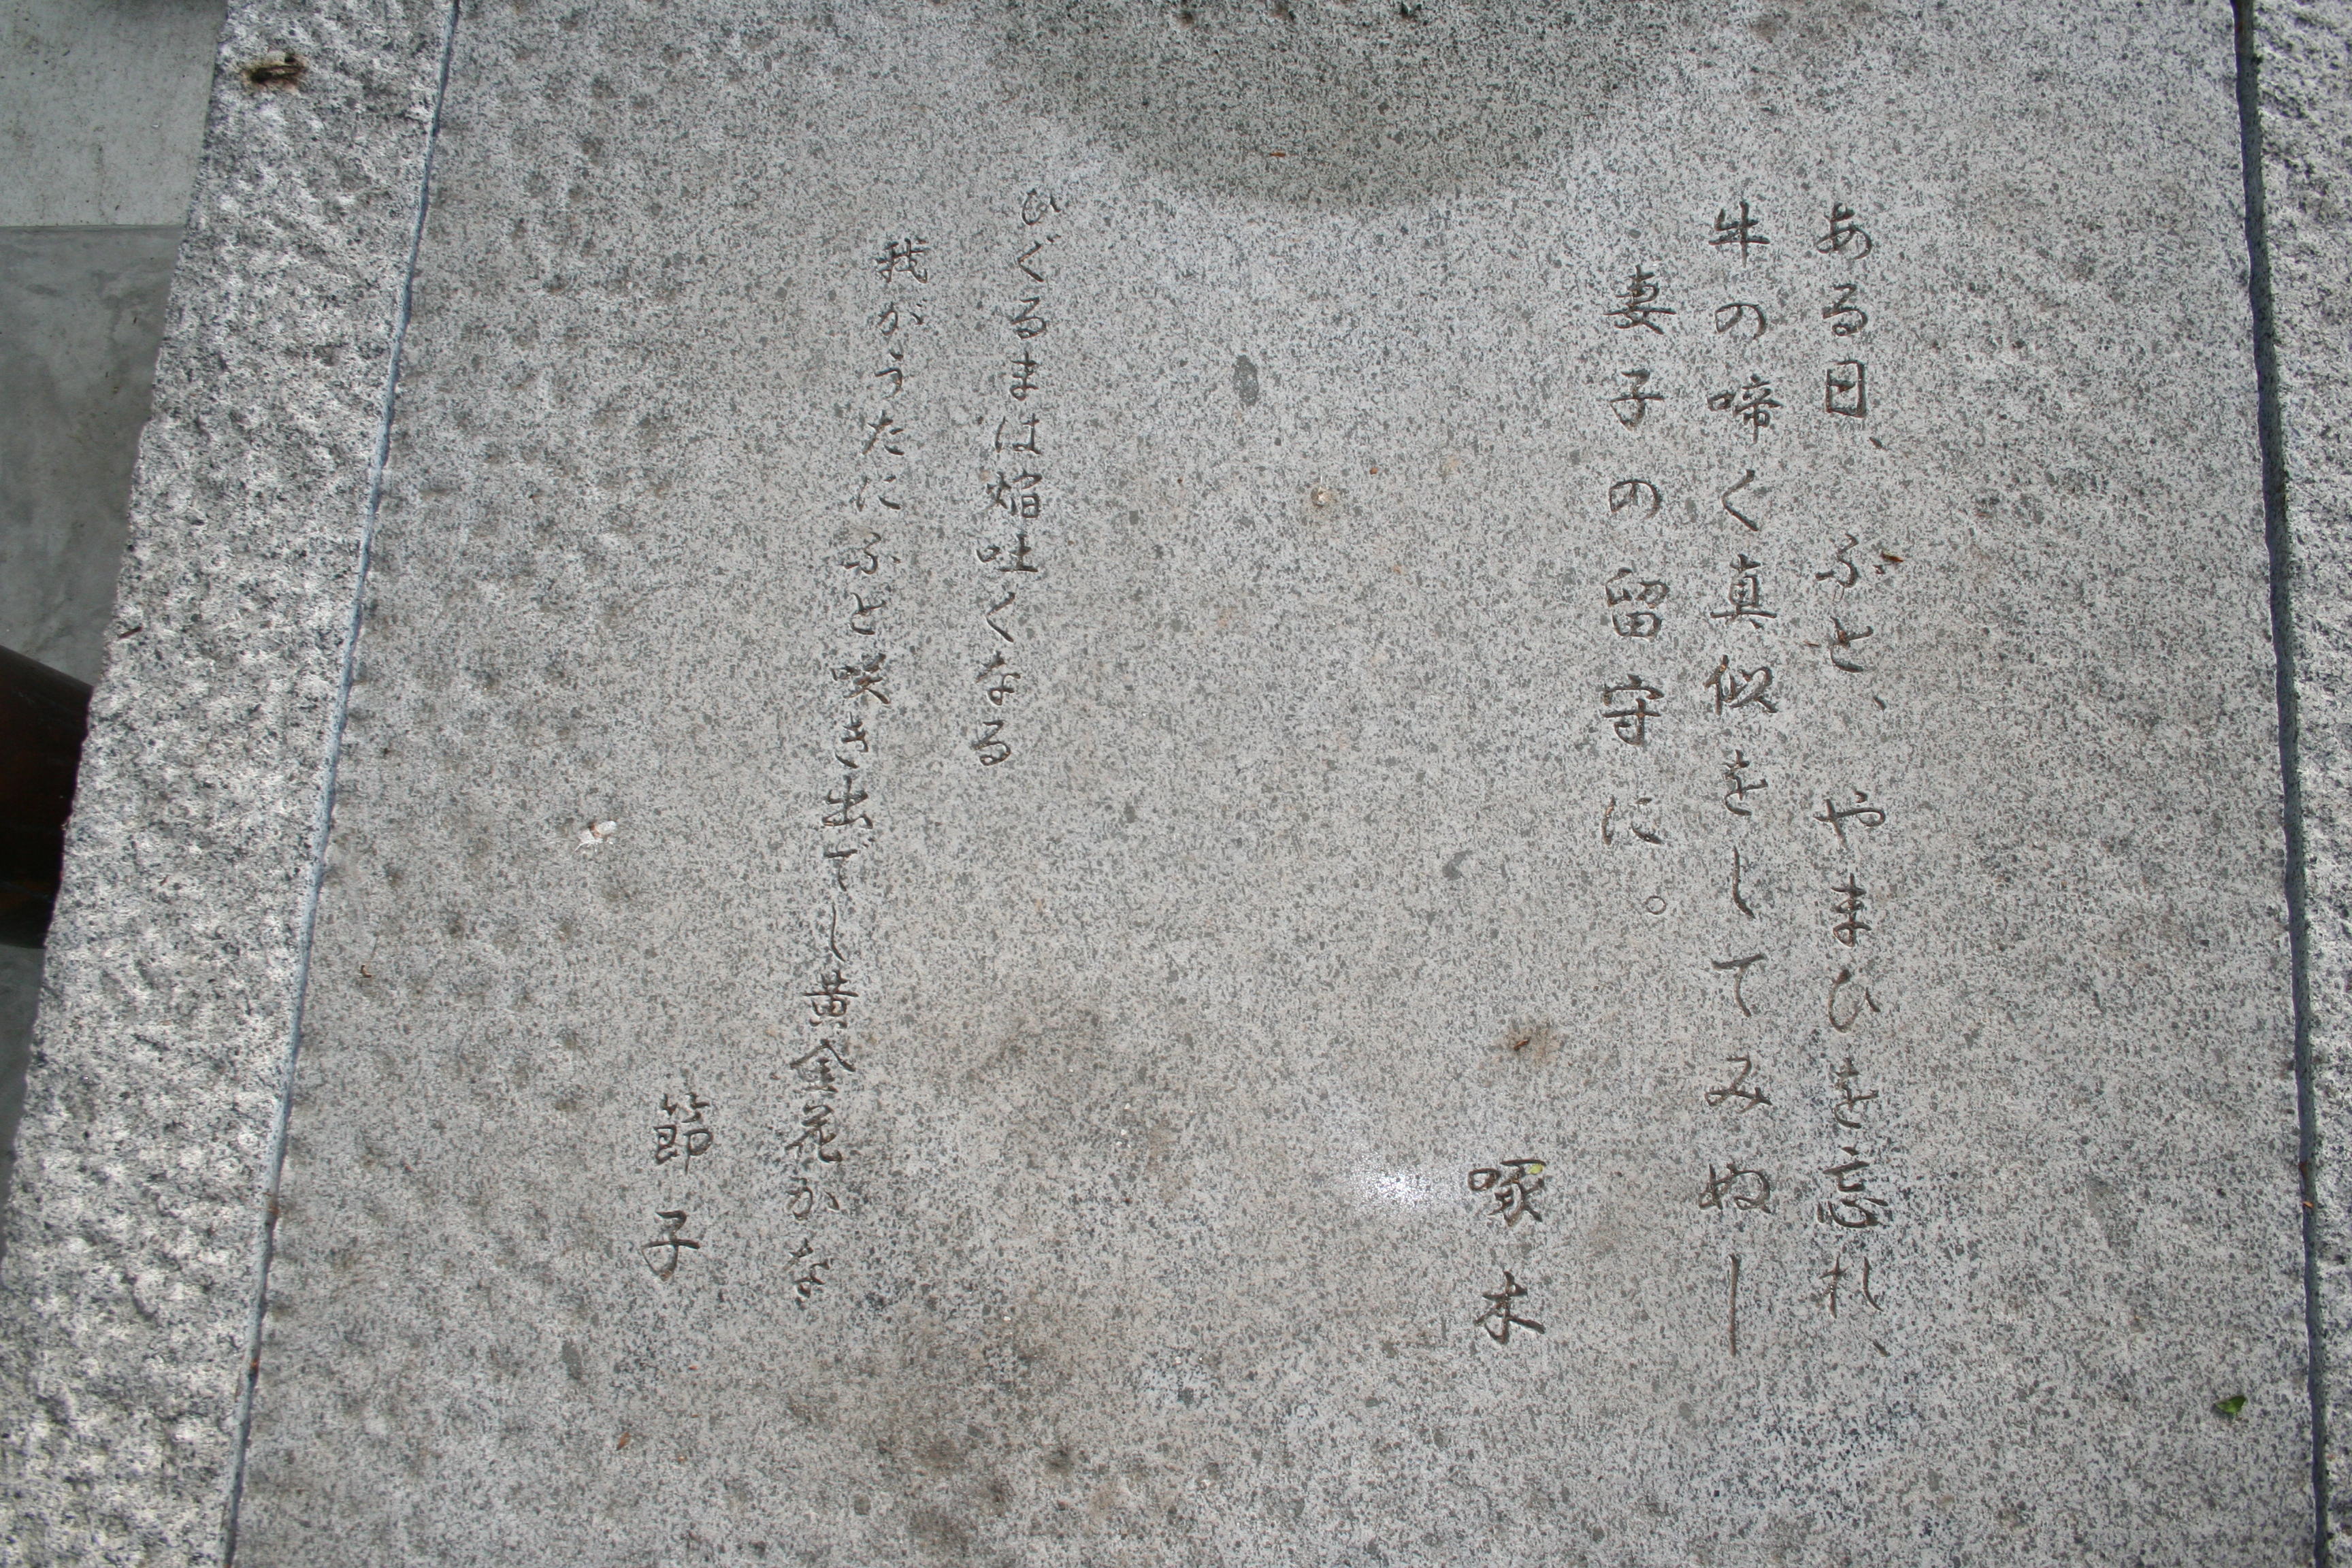 ある日、ふと、やまひを忘れ、
牛の啼く真似をしてみぬ―
妻子の留守に。
啄木
ひぐるまは焔吐くなる
我がうたにふと咲き出でし黄金花かな
節子